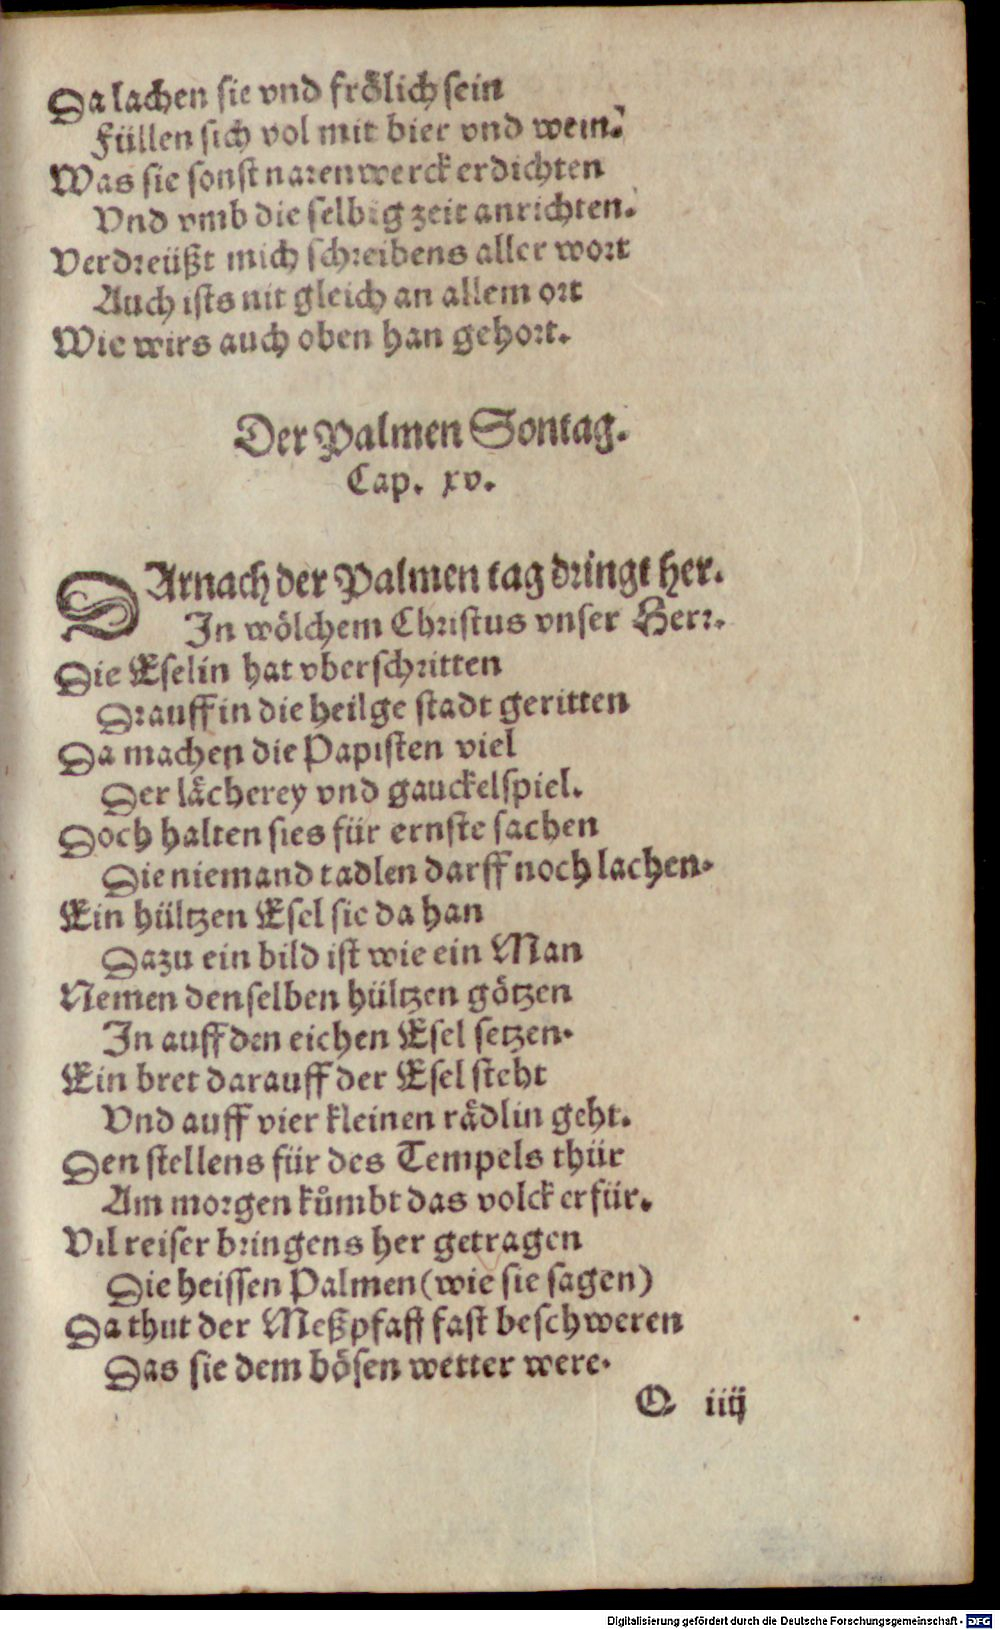 Da lachen sie vnd frölich sein
Füllen sich vol mit bier vnd wein.
Was sie sonst narenwerck erdichten
Vnd vmb die selbig zeit anrichten.
Verdreüßt mich schreibens aller wort
Auch ists nit gleich an allem ort
Wie wirs auch oben han gehort.
Der Palmen Sontag.
Cap. xv.
DArnach der Palmen tag dringt her.
In wölchem Christus vnser Herr.
Die Eselin hat vberschritten
Drauff in die heilge stadt geritten
Da machen die Papisten viel
Der lächerey vnd gauckelspiel.
Doch halten sies für ernste sachen
Die niemand tadlen darff noch lachen.
Ein hültzen Esel sie da han
Dazu ein bild ist wie ein Man
Nemen denselben hültzen götzen
In auff den eichen Esel setzen.
Ein bret darauff der Esel steht
Vnd auff vier kleinen rädlin geht.
Den stellens für des Tempels thür
Am morgen kůmbt das volck erfür.
Vil reiser bringens her getragen
Die heissen Palmen (wie sie sagen)
Da thut der Meßpfaff fast beschweren
Das sie dem bösen wetter were.
O. iiij
Digitalisierung gefördert durch die Deutsche Forschungsgemeinschaft - DFG